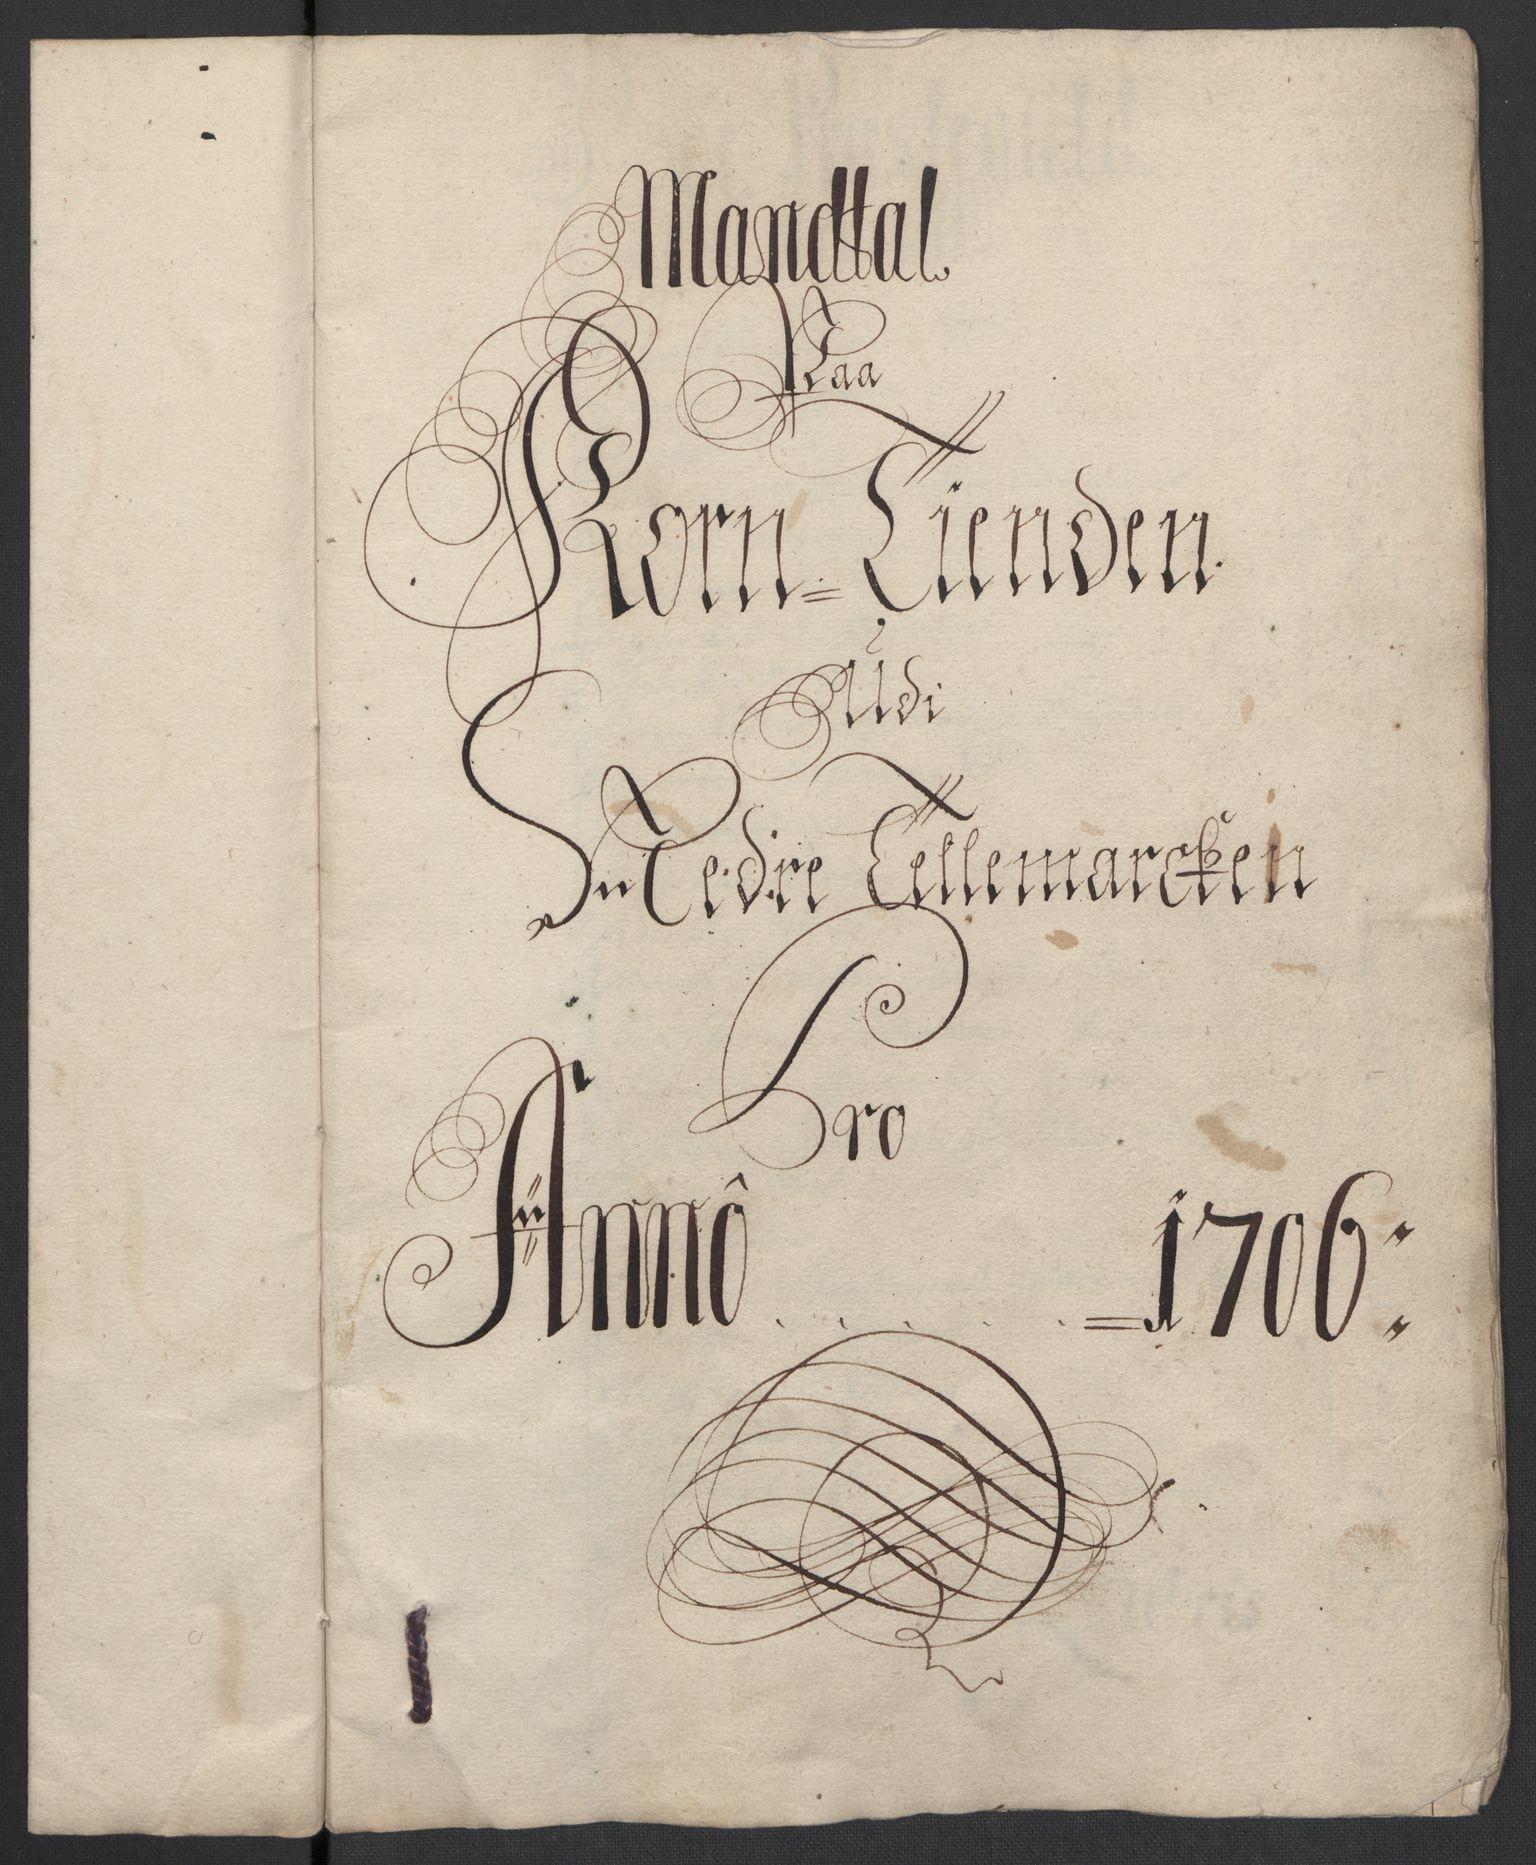 Mandtal
Paa
Korn = Tienden
Udi
Nedre Tellemarcken
Pro
Annô . . . . . = 1706: